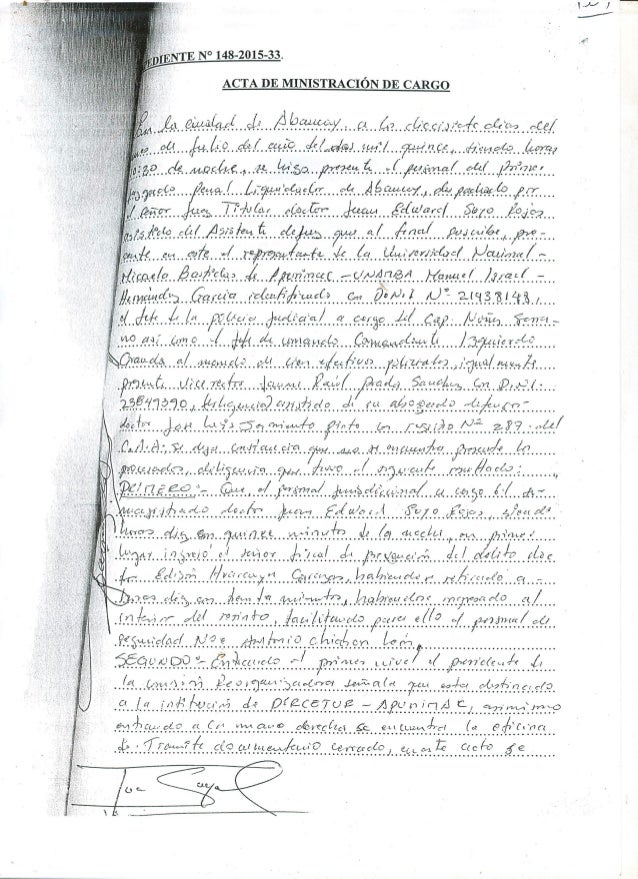 EDIENTE Nº 148-2015-33.
ACTA DE MINISTRACIÓN DE CARGO
En la ciudad de Abancay, a los diecisiete dias del
de Julio del año del dos mil quince, siendo horas
de noche, se hizo presente el personal del Primer
Juzgado Penal Liquidador de Abancay, despachado por
el Señor Juez Titular doctor Juan Edward Suyo Rojas
asistido del Asistente de Juez que al final suscribe, pre-
sente en este el representante de la Universidad Nacional -
Micaela Bastidas de Apurimac - UNAMBA Manuel Israel -
Hernández Garcia identificado con D.N.I. Nº 21438148,
el Jefe de la policia Judicial a cargo del Cap. Nuñez Serra-
no así como el Jefe de comando Comandante Izquierdo
Granda al mando de cien efectivos policiales, igualmente
presente Vice rector Jaime Raúl Prada Sanchez con D.N.I.
23849390, diligencia asistido de su abogado defensor
doctor José Luis Sarmiento Pinto con registro Nº 287 del
C.A.A. Se deja constancia que no se encuentra presente los
procesados, diligencia que tuvo el siguiente resultado:
PRIMERO.- Que, el personal jurisdiccional a cargo del
magistrado doctor Juan Edward Suyo Rojas, siendo
horas diez con quince minutos de la noche, en primer
lugar ingreso el señor fiscal de prevención del delito doc
tor Edison Huarcaya habiendose retirado a -
horas diez con treinta minutos, habiendose ingresado al
interior del recinto, facilitando para ello el personal de
seguridad Noe Antonio Chichon León.
SEGUNDO.- Entrando el primer nivel el presidente de
la comisión Reorganizadora señala que esta destinado
a la institución de DIRCETUR - APURIMAC, asimismo
entrando a la mano derecha se encuentra la oficina
de Tramite documentario cerrado, en este acto se